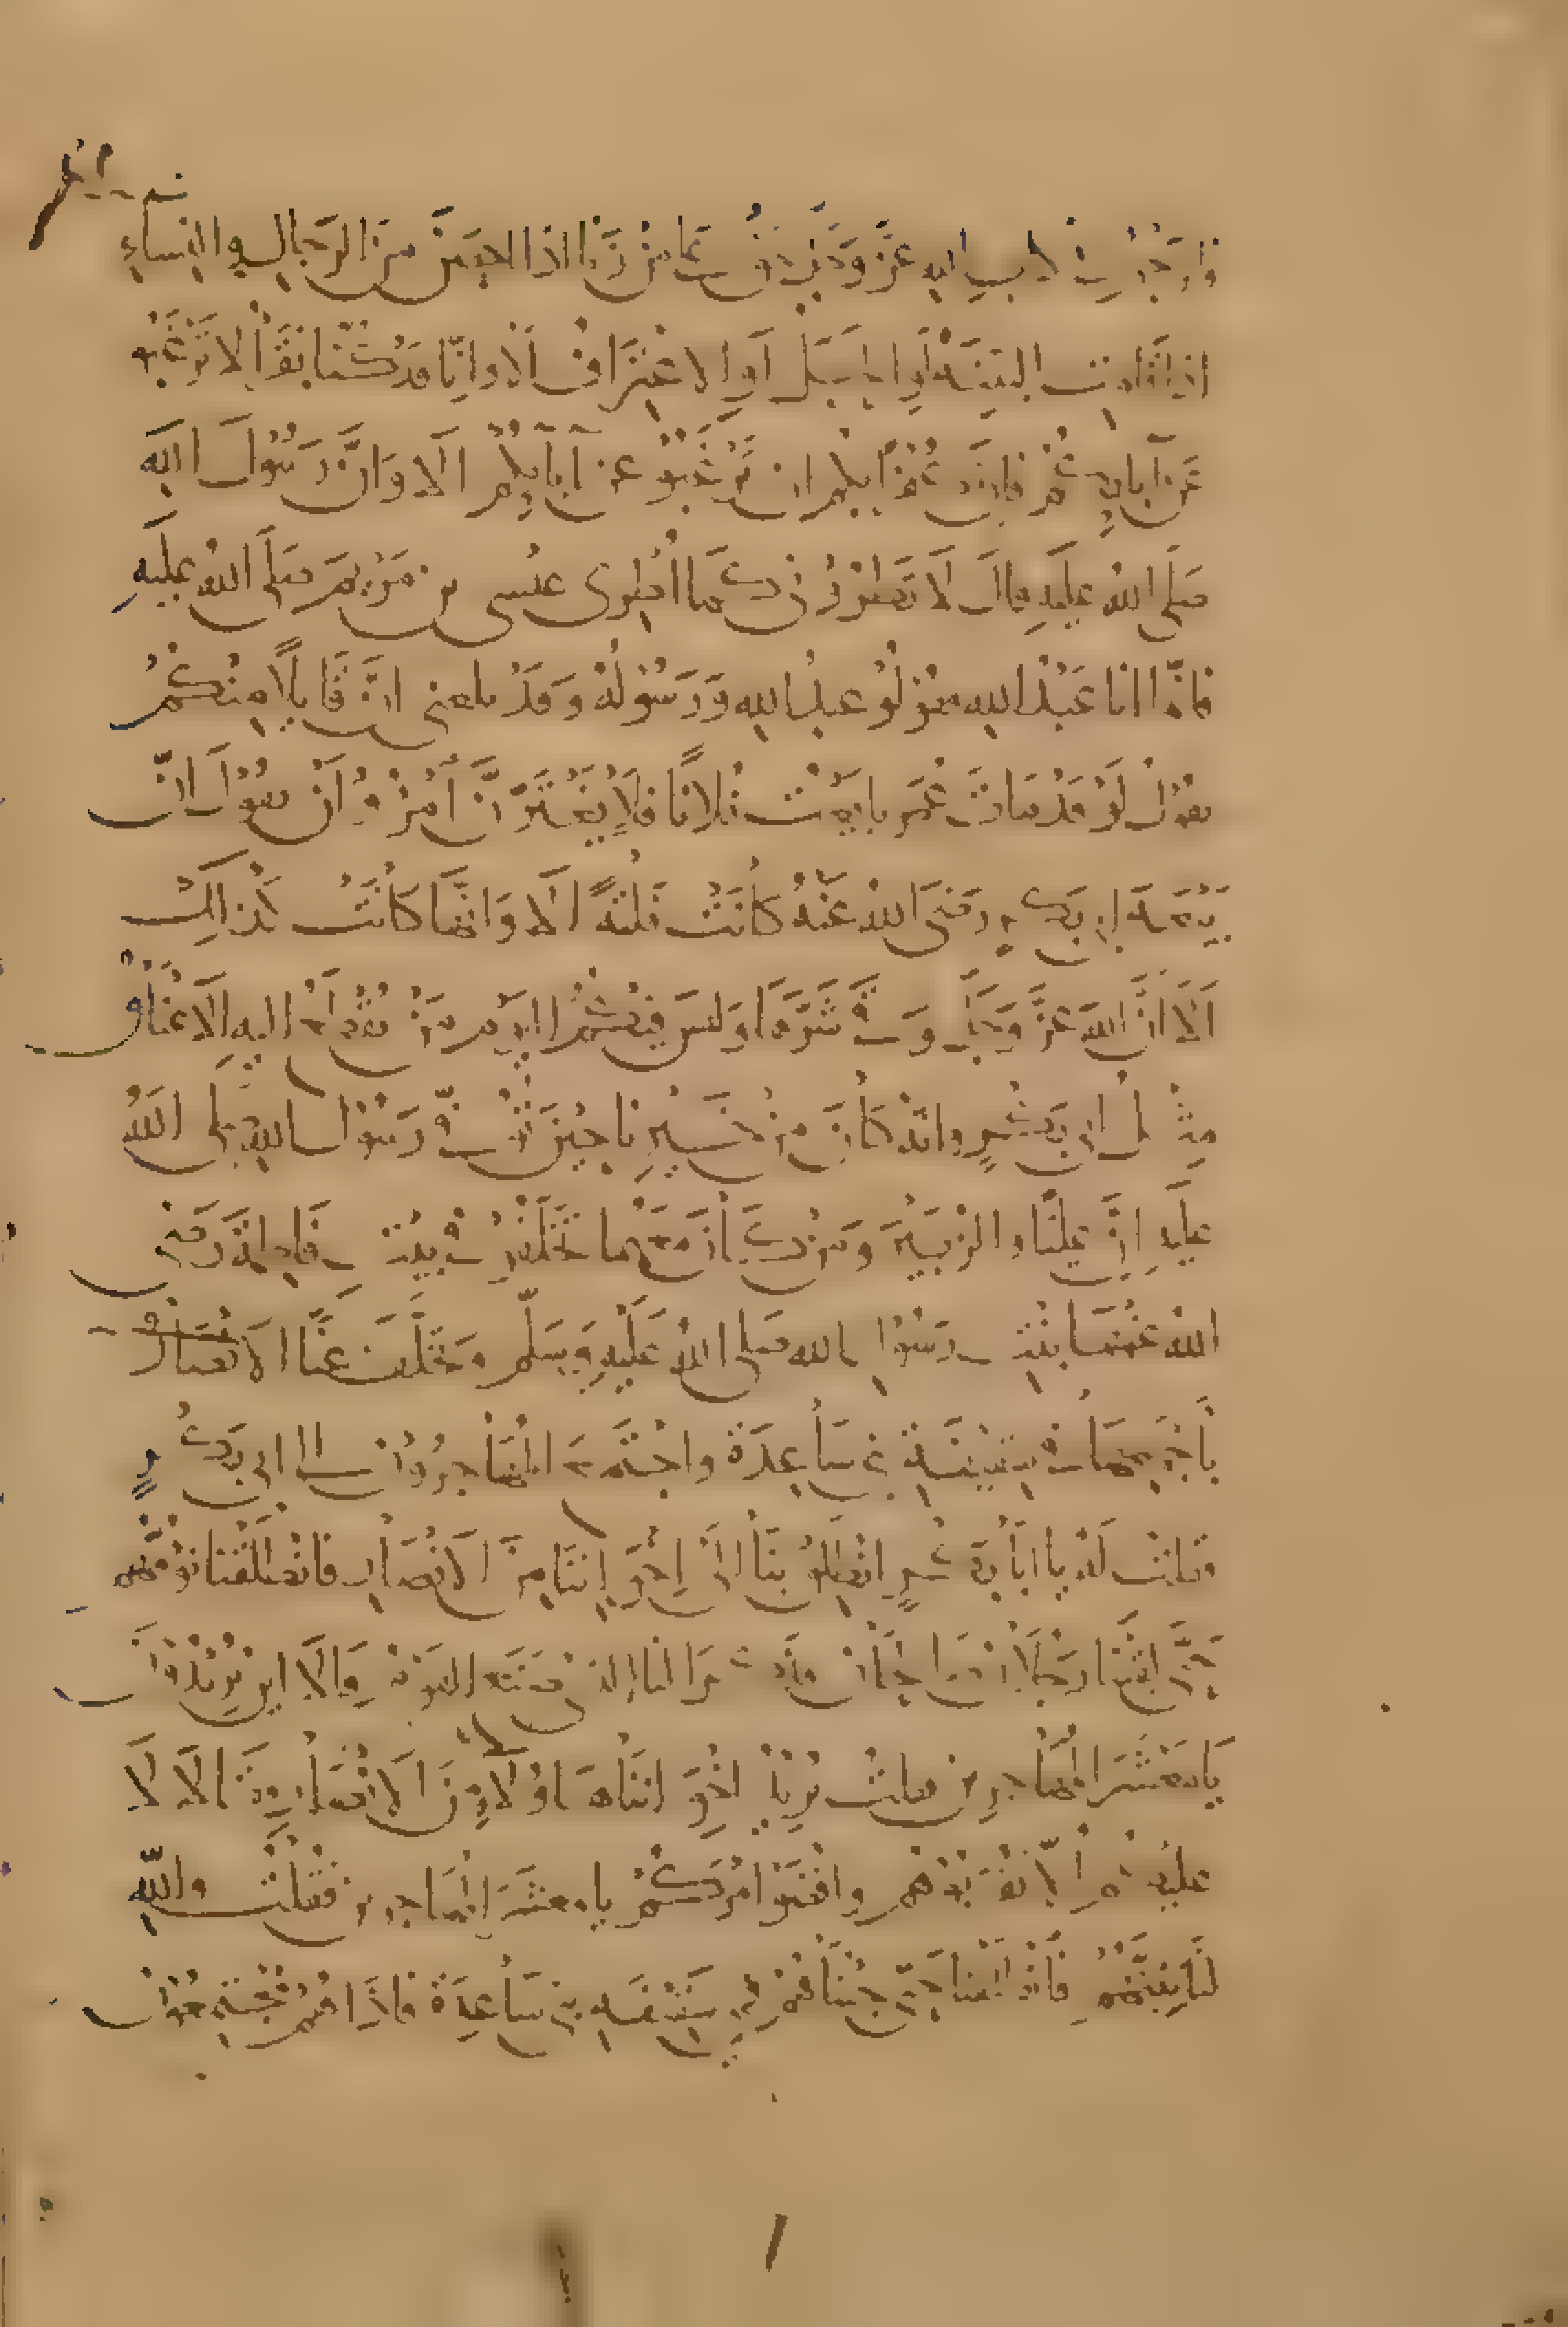 فالرجم في كتاب الله عز وجل حق على من زنا اذا احصن من الرجال والنساء
اذا قامت البينة او الحبل او الاعتراف الا وانا قد كنا نقرا لا ترغبو
عن آبايكم فان كفرا بكم ان ترغبو عن آبايكم الا وان رسول الله
صلى الله عليه قال لا تطروني كما اطرى عيسى بن مريم صلى الله عليه
فانما انا عبد الله فقولو عبد الله ورسوله وقد بلغني ان قايلا منكم
يقول لو قد مات عمر بايعت فلانا فلا يغترن امرو ان يقول ان
بيعة ابي بكر رضي الله عنه كانت فلتة الا وانها كانت كذلك
الا ان الله عز وجل وقى شرها وليس فيكم اليوم من تقطع اليه الاعناق
مثل ابي بكر وانه كان من خيرنا حين توفي رسول الله صلى الله
عليه ان عليا والزبير ومن كان معهما تخلفو في بيت فاطمة رضي
الله عنهما بنت رسول الله صلى الله عليه وسلم وتخلفت عنا الانصار
باجمعها في سقيفة بني ساعدة واجتمع المهاجرون الى ابي بكر
فقلت له يا ابا بكر انطلق بنا الى اخواننا من الانصار فانطلقنا نؤمهم
حتى لقينا رجلان صالحان فذكرا لنا الذي صنع القوم وقالا اين تريدون
يا معشر المهاجرين فقلت نريد اخواننا هاولاء من الانصار فقالا لا
عليكم الا تقربوهم واقضوا امركم يا معشر المهاجرين فقلت والله
لناتينهم فانطلقنا حتى جئناهم في سقيفة بني ساعدة فاذا هم مجتمعون